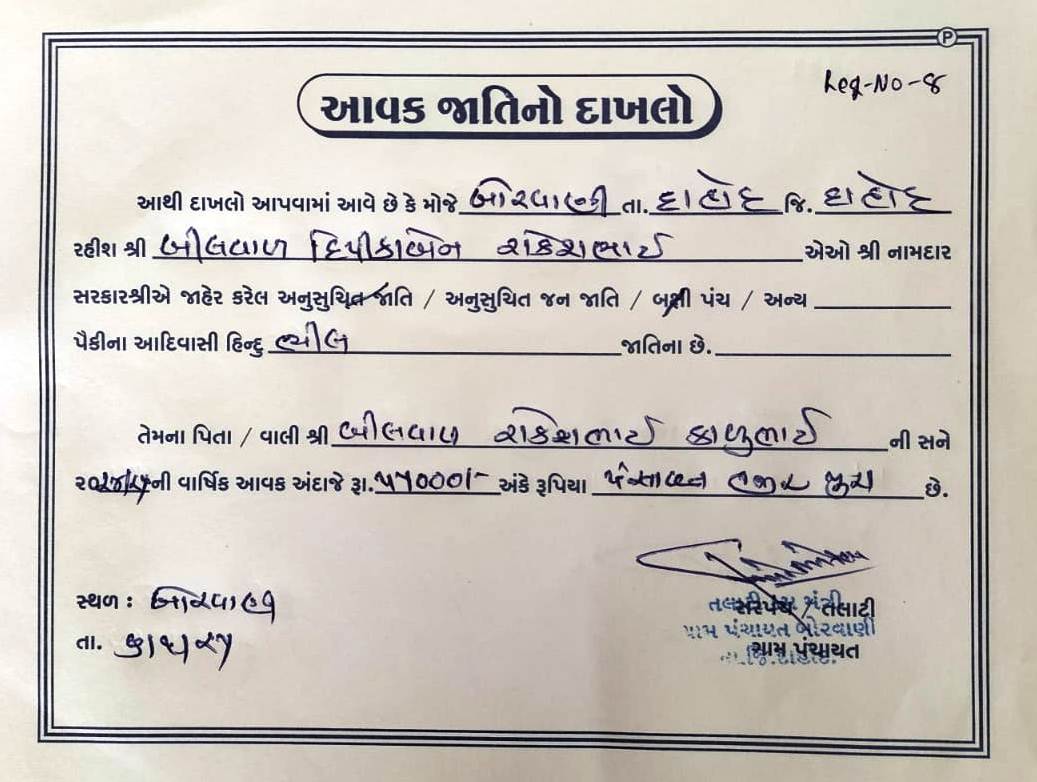 Reg-No-8
આવક જાતિનો દાખલો
આથી દાખલો આપવામાં આવે છે કે મોજે બોરવાણી તા. દાહોદ જિ. દાહોદ
રહીશ શ્રી બીલવાળ દિપીકાબેન રાકેશભાઈ એઓ શ્રી નામદાર
સરકારશ્રીએ જાહેર કરેલ અનુસુચિત જાતિ / અનુસુચિત જન જાતિ / બક્ષી પંચ / અન્ય
પૈકીના આદિવાસી હિન્દુ ભીલ જાતિના છે.
તેમના પિતા / વાલી શ્રી બીલવાળ રાકેશભાઈ કાળુભાઈ ની સને
૨૦૨૪/૨૫ની વાર્ષિક આવક અંદાજે રૂા. ૫૫૦૦૦/- અંકે રૂપિયા પંચાવન હજાર પુરા છે.
સ્થળ : બોરવાણી
તા.
સરપંચ / તલાટી
ગ્રામ પંચાયત
તલાટી કમ મંત્રી
ગ્રામ પંચાયત બોરવાણી
તા.જિ.દાહોદ.